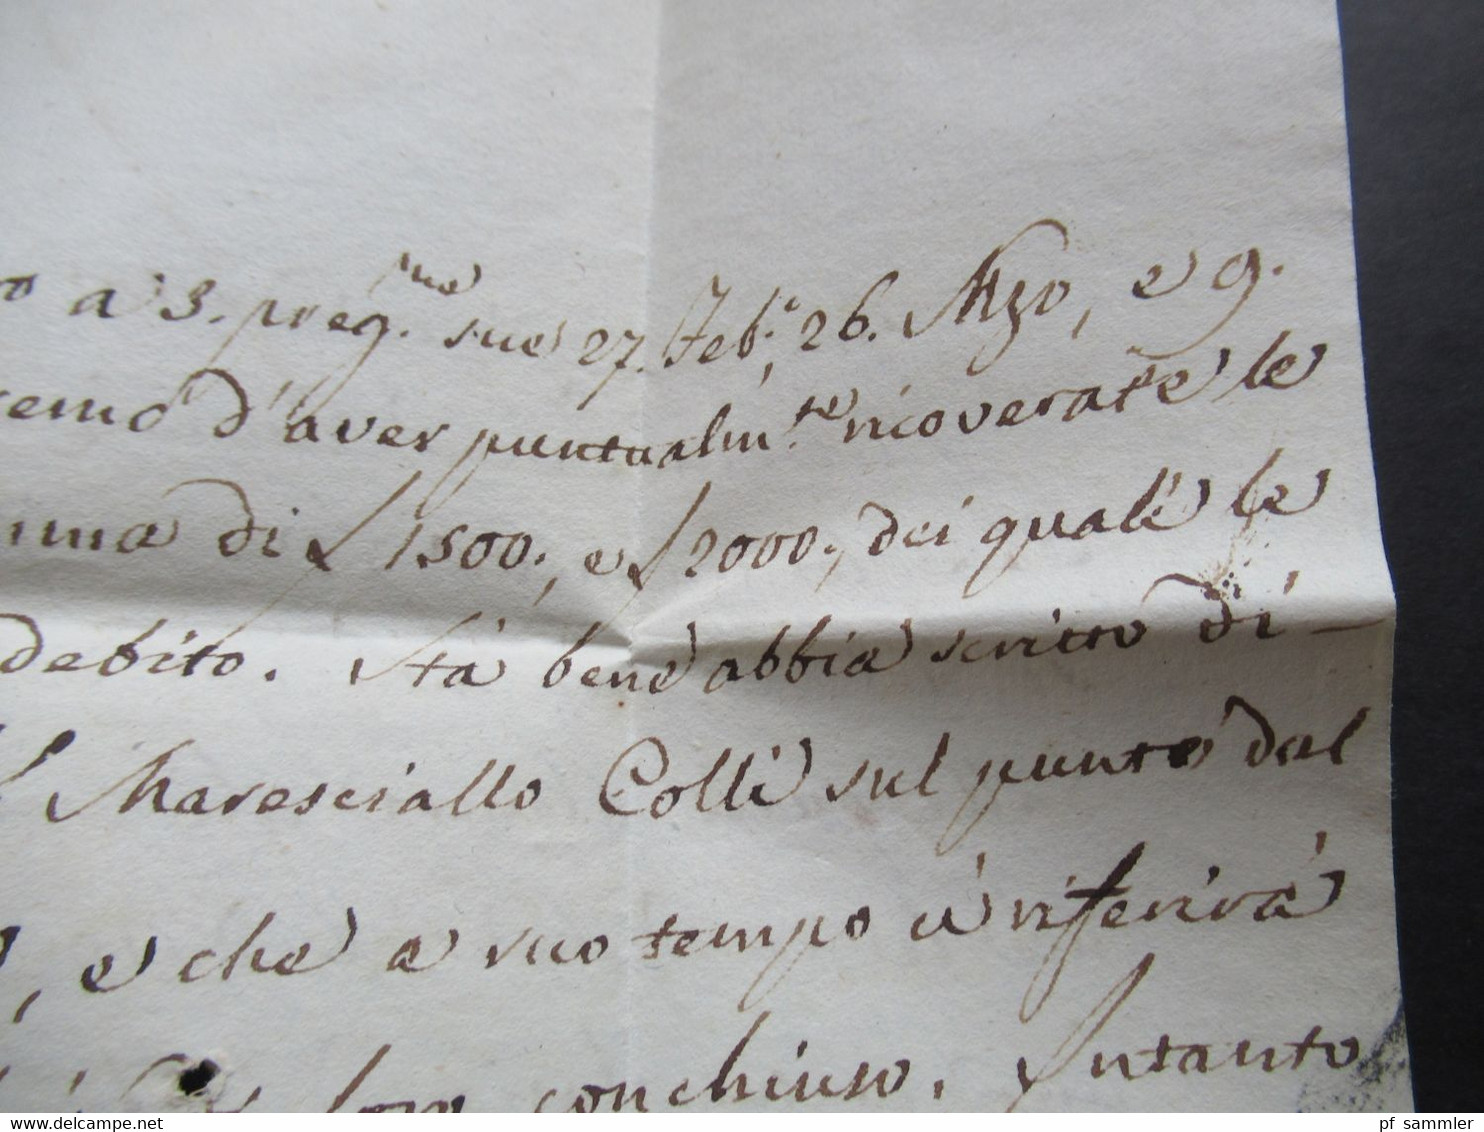 ro a 3. preg.me sue 27. Feb.o, 26. Mzo, e 9.
d'aver puntualm.te ricoverate le
di £ 1500., e £ 2000., dei quali le
debito. Stà bene abbia scritto di-
Maresciallo Colli sul punto dal
, e che a suo tempo ci riferirà
loro conchiuso. Intanto
www.delcampe.net
pf sammler